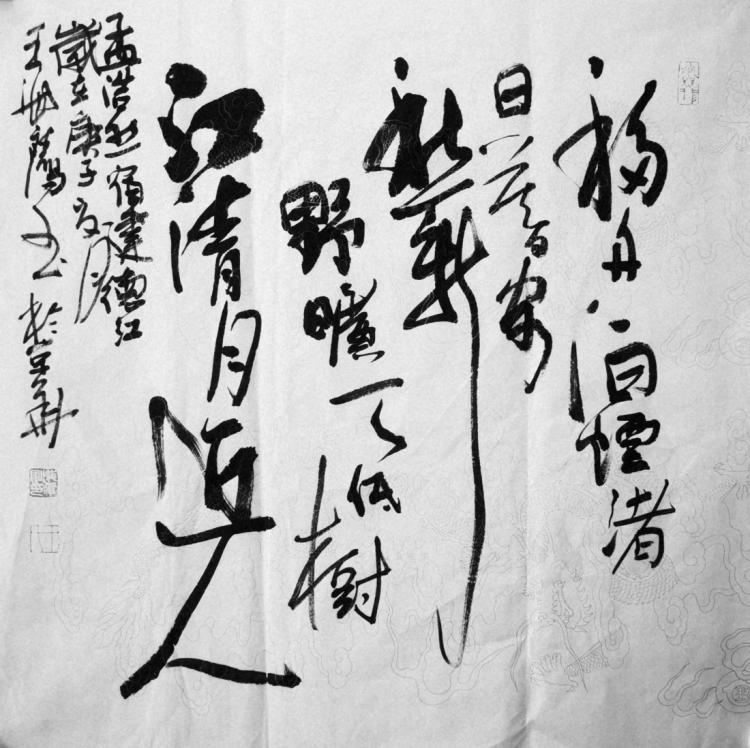 移舟泊煙渚
日暮客
愁新
野曠天低樹
江清月近人
孟浩然宿建德江
歲在庚子夏月
王 陽書於